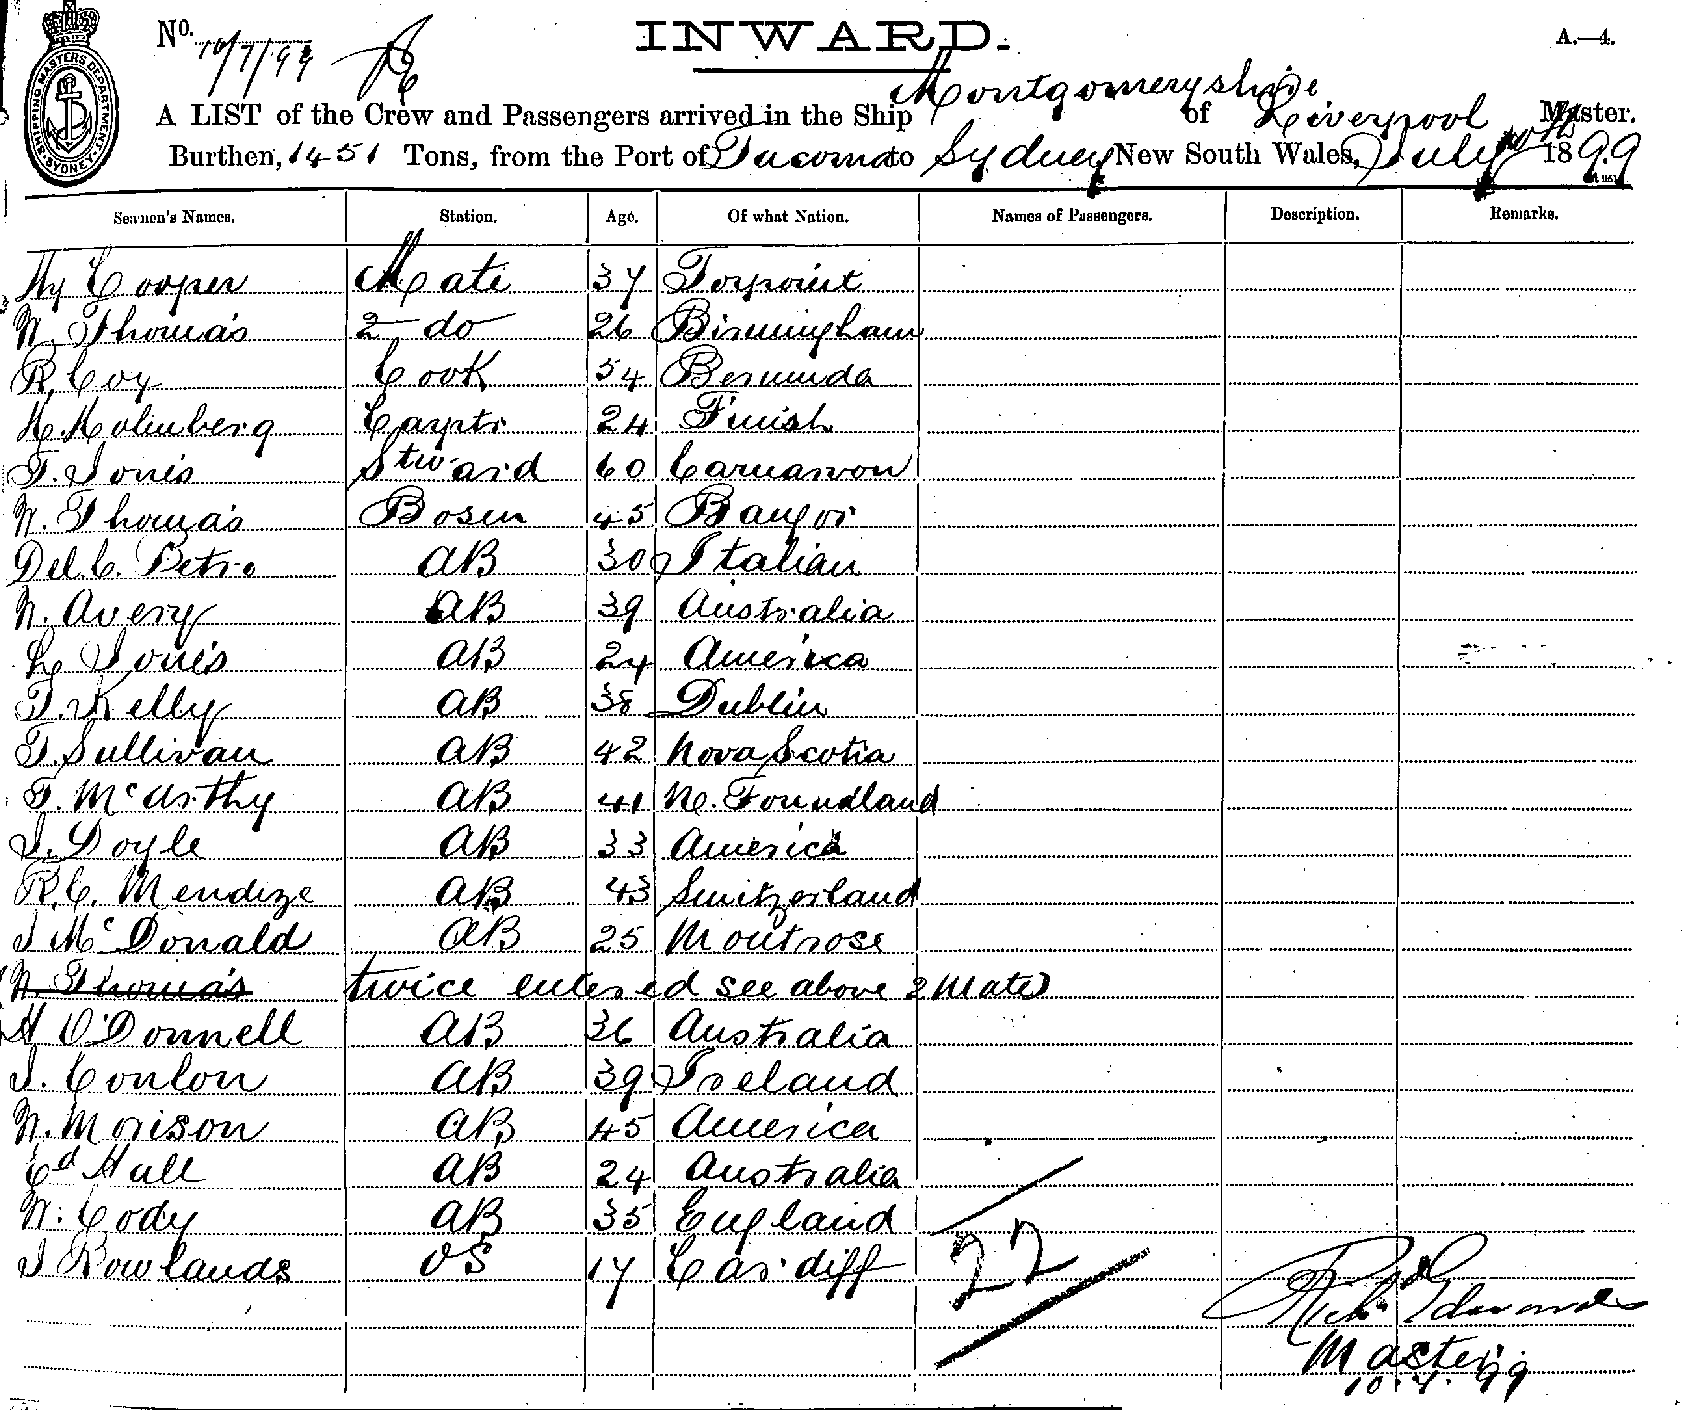 No. 10/7/99
INWARD.
A.—4.
SHIPPING MASTERS DEPARTMENT SYDNEY
A LIST of the Crew and Passengers arrived in the Ship Montgomeryshire of Liverpool Master.
Burthen, 1451 Tons, from the Port of Tacoma to Sydney New South Wales, July 10th 1899
Seamen's Names. Station. Age. Of what Nation. Names of Passengers. Description. Remarks.
Hy Cooper Mate 37 Torpoint
W. Thomas 2 do 26 Birmingham
R. Coy Cook 54 Bermuda
H. Holmberg Carptr 24 Finish
T. Jones Steward 60 Carnarvon
W. Thomas Bosen 45 Bangor
Del. C. Petro AB 30 Italian
W. Avery AB 39 Australia
Jones AB 24 America
T. Kelly AB 38 Dublin
T. Sullivan AB 42 Nova Scotia
T. McArthy AB 41 N. Foundland
J. Doyle AB 33 America
R. C. Mendize AB 43 Switzerland
J McDonald AB 25 Montrose
W. Thomas twice entered see above 2 Mate
H O'Donnell AB 36 Australia
J. Conlon AB 39 Ireland
W. Morison AB 45 America
Ed Hall AB 24 Australia
W. Cody AB 35 England
J Rowlands OS 17 Cardiff
22
Richd Edwards
Master
10.7.99